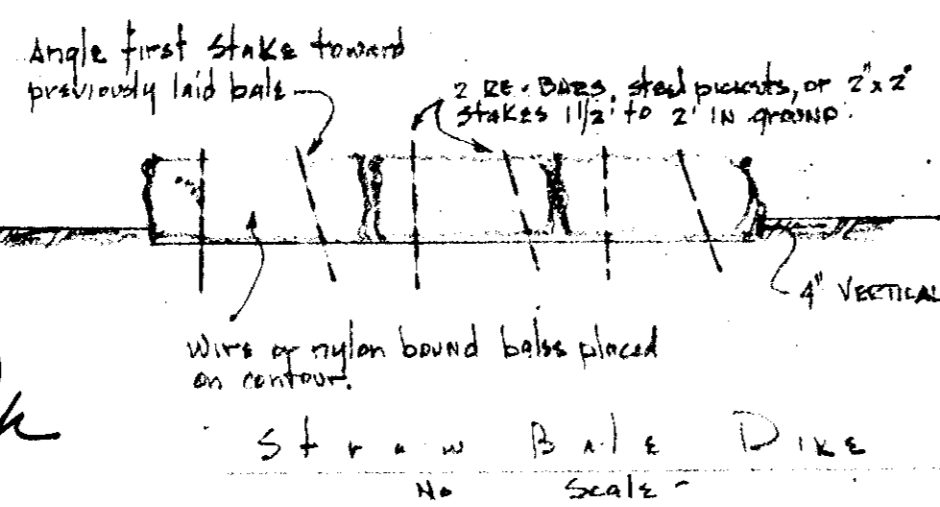 Angle first stake toward
previously laid bale
2 RE-BARS, steel pickets, or 2"x2"
stakes 1 1/2' to 2' IN GROUND.
4" VERTICAL
Wire or nylon bound bales placed
on contour.
Straw Bale Dike
No Scale -